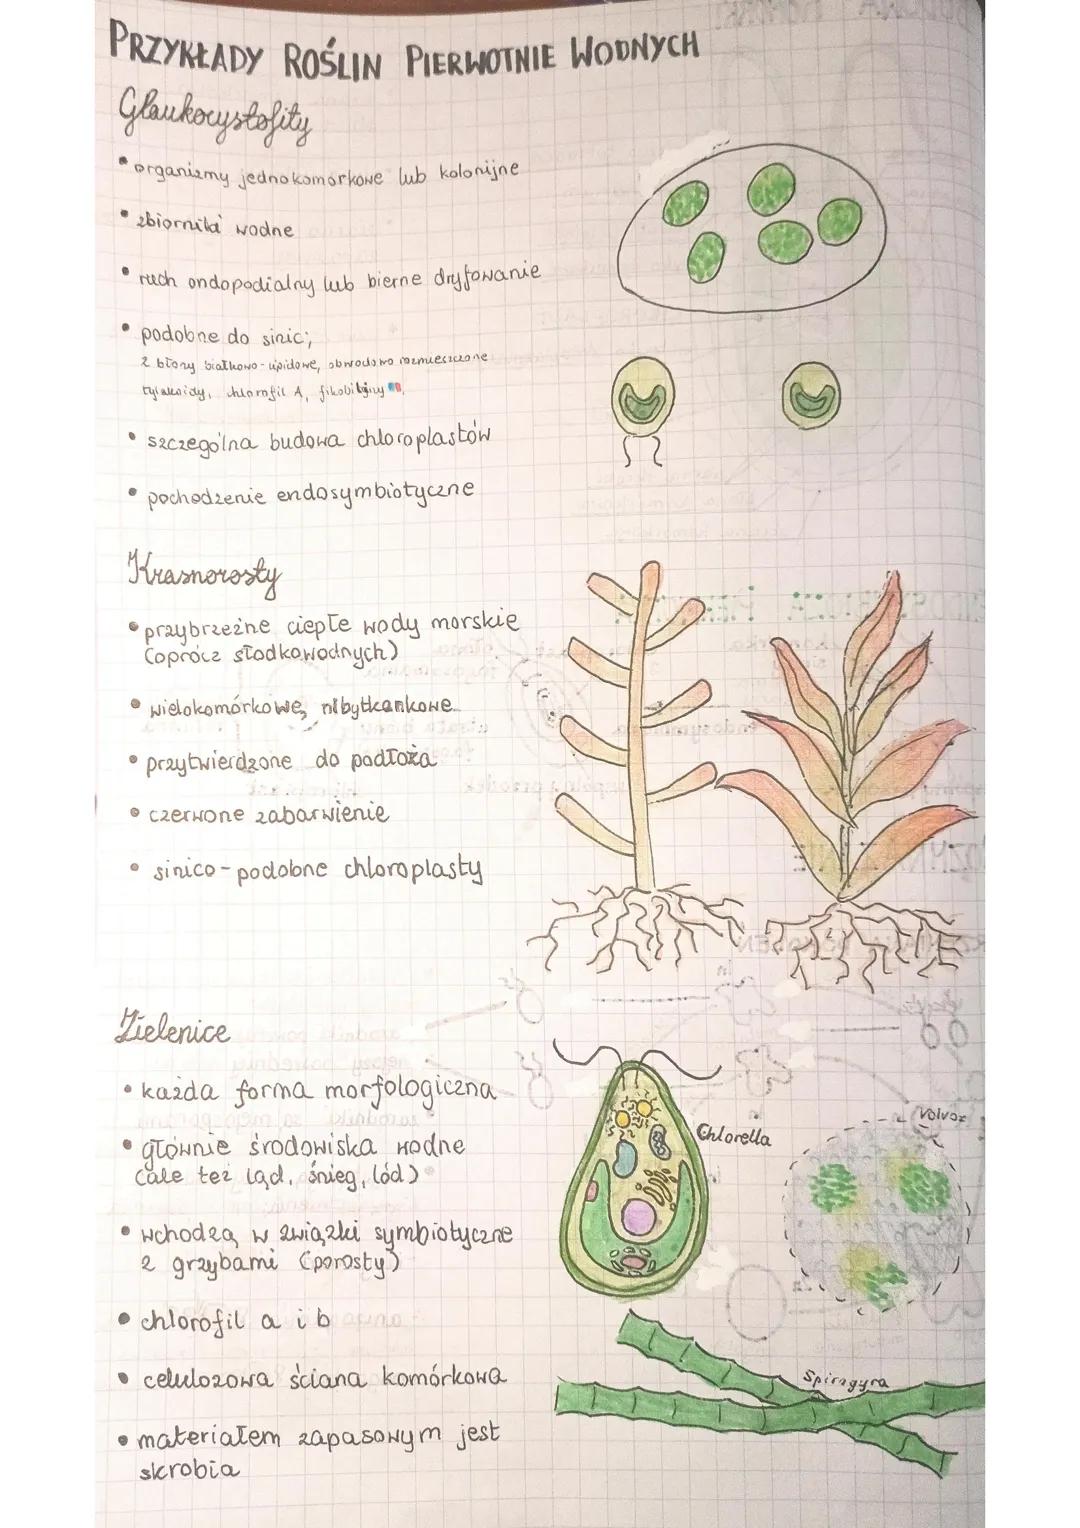 PRZYKŁADY ROŚLIN PIERWOTNIE WODNYCH
Glaukocystofity
• organizmy jednokomórkowe lub kolonijne
• zbiorniki wodne
• ruch ondopodialny lub bierne dryfowanie
• podobne do sinic;
2 błony białkowo-lipidowe, obwodowo rozmieszczone
tylakoidy, chlorofil A, fikobiliny
• szczególna budowa chloroplastów
• pochodzenie endosymbiotyczne
Krasnorosty
• przybrzeżne ciepłe wody morskie
(oprócz słodkowodnych)
• wielokomórkowe, nibytkankowe
• przytwierdzone do podłoża
• czerwone zabarwienie
• sinico-podobne chloroplasty
Zielenice
• każda forma morfologiczna
• głównie środowiska wodne
(ale też ląd, śnieg, lód)
• wchodzą w związki symbiotyczne
z grzybami (porosty)
• chlorofil a i b
• celulozowa ściana komórkowa
• materiałem zapasowym jest
skrobia
Chlorella
Volvox
Spirogyra